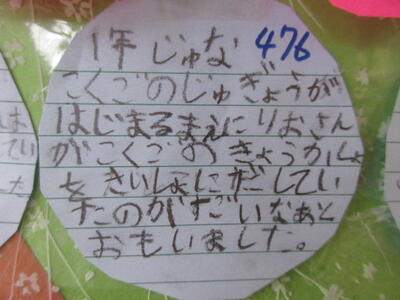 1年 じゅな 476
こくごのじゅぎょうが
はじまるまえにりおさん
がこくごのきょうかしょ
をさいしょにだしてい
たのがすごいなあと
おもいました。